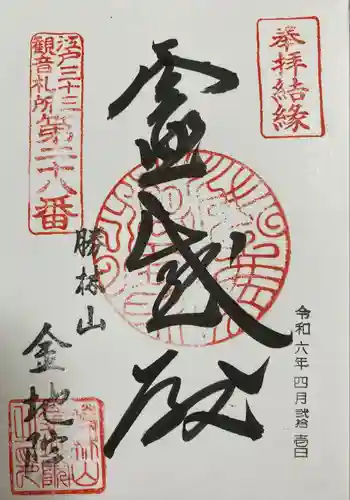 奉拝結縁
江戸三十三
観音札所
第二十八番
霊感殿
勝林山
金地院
令和六年四月弐拾壱日